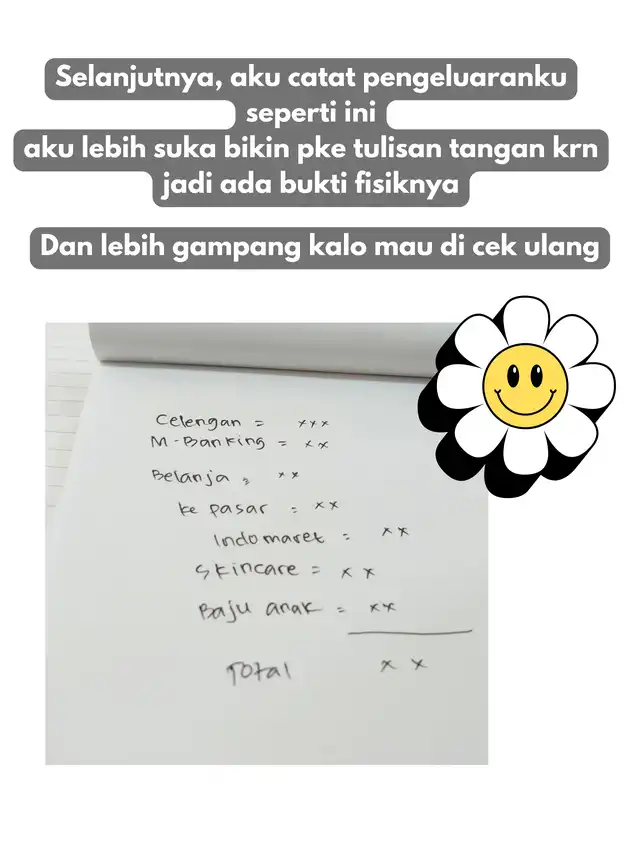 Selanjutnya, aku catat pengeluaranku
seperti ini
aku lebih suka bikin pke tulisan tangan krn
jadi ada bukti fisiknya
Dan lebih gampang kalo mau di cek ulang
Celengan = xxx
M-Banking = xx
Belanja = xx
ke pasar = xx
Indomaret = xx
Skincare = xx
Baju anak = xx
Total xx